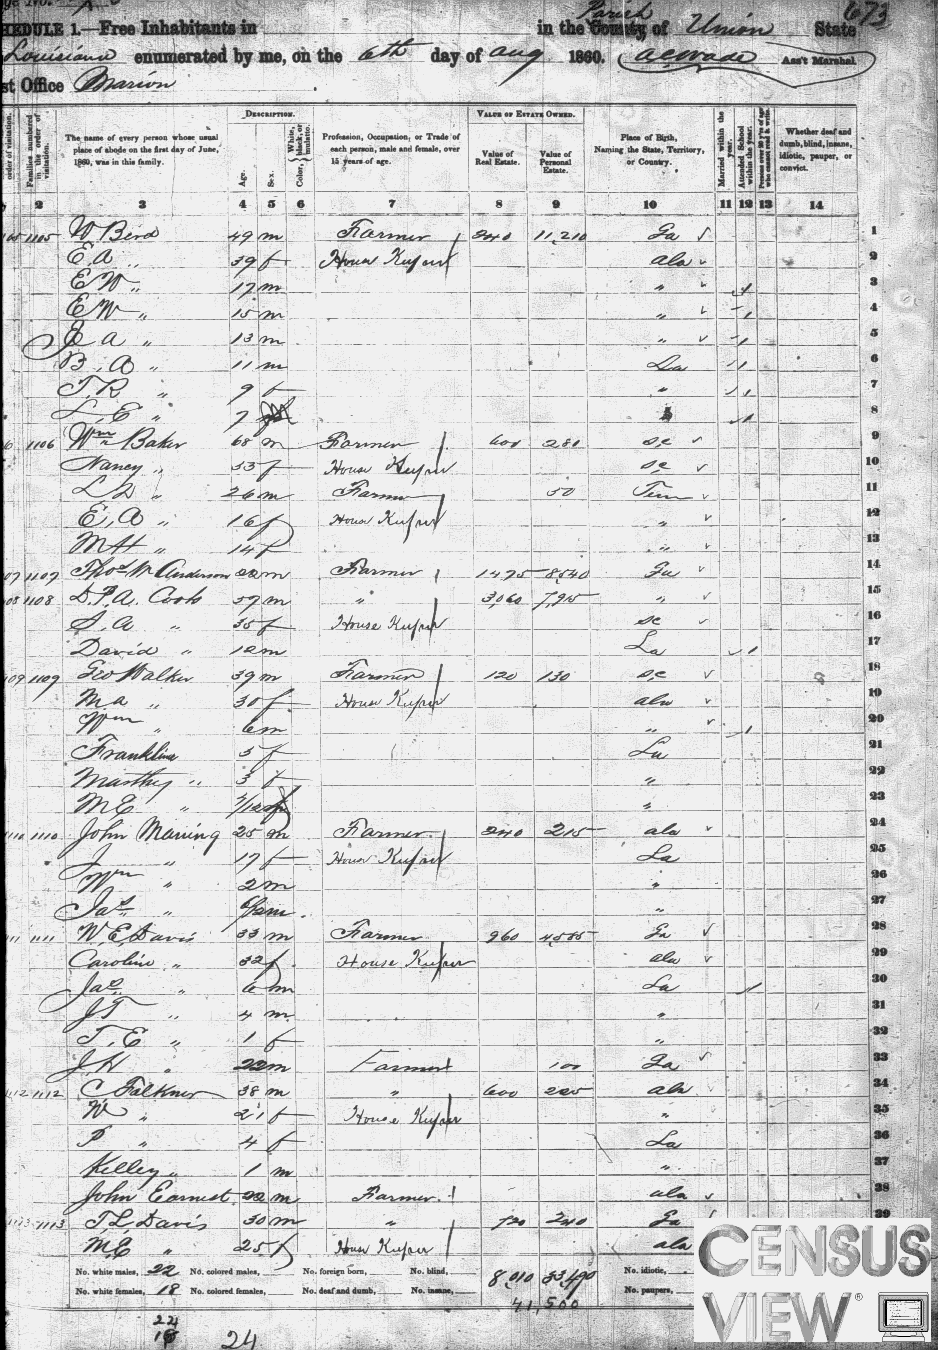 673
HEDULE 1.—Free Inhabitants in in the County of Parish Union State
Louisiana enumerated by me, on the 6th day of Aug 1860. Ass't Marshal.
st Office Marion
order of visitation.
Families numbered in the order of visitation.
The name of every person whose usual place of abode on the first day of June, 1860, was in this family.
DESCRIPTION.
Age. Sex. Color, White, black, or mulatto.
Profession, Occupation, or Trade of each person, male and female, over 15 years of age.
VALUE OF ESTATE OWNED.
Value of Real Estate. Value of Personal Estate.
Place of Birth, Naming the State, Territory, or Country.
Married within the year. Attended School within the year.
Whether deaf and dumb, blind, insane, idiotic, pauper, or convict.
2 3 4 5 6 7 8 9 10 11 12 13 14
1105 W 49 m Farmer 240 11,210 Ga 1
E A „ 39 f House Keeper ala 2
E W „ 17 m „ 1 3
E W „ 15 m „ 1 4
a „ 13 m „ 1 5
B. A „ 11 m La 1 6
T. R „ 9 f „ 1 7
L. E „ 7 1 8
1106 Wm Baker 68 m Farmer 600 280 SC 9
Nancy „ 53 f House Keeper SC 10
L „ 26 m Farmer 50 Tenn 11
E. A „ 16 f House Keeper „ 12
M H „ 14 f „ 13
1107 Thos W Anderson 22 m Farmer 1475 8540 Ga 14
1108 D. P. A. Cook 37 m „ 3,060 7,915 „ 15
S. A „ 35 f House Keeper SC 16
David „ 12 m La 1 17
1109 Geo Walker 39 m Farmer 120 130 SC 18
M a „ 30 f House Keeper ala 19
Wm „ 6 m „ 1 20
Franklin 5 f La 21
Marthy „ 3 f „ 22
M E „ /12 f „ 23
1110 John Manning 25 m Farmer 240 215 ala 24
J „ 17 f House Keeper La 25
Wm „ 2 m „ 26
Jas „ /12 m „ 27
1111 W. E. Davis 33 m Farmer 960 4,585 Ga 28
Caroline „ 32 f House Keeper ala 29
Jas „ 6 m La 1 30
J T „ 4 m „ 31
T. E „ 1 f „ 32
J. H „ 22 m Farmer 100 Ga 33
1112 C Falkner 38 m „ 600 225 ala 34
W „ 21 f House Keeper „ 35
P „ 4 f La 36
Kelley „ 1 m „ 37
John Earnest 22 m Farmer ala 38
1113 T. L. Davis 30 m „ 720 240 Ga 39
M. E „ 25 f House Keeper ala
No. white males, 22 No. colored males, No. foreign born, No. blind, 8,010 33,490 No. idiotic,
No. white females, 18 No. colored females, No. deaf and dumb, No. insane, No. paupers,
41,500
22
18 24
CENSUS
VIEW®